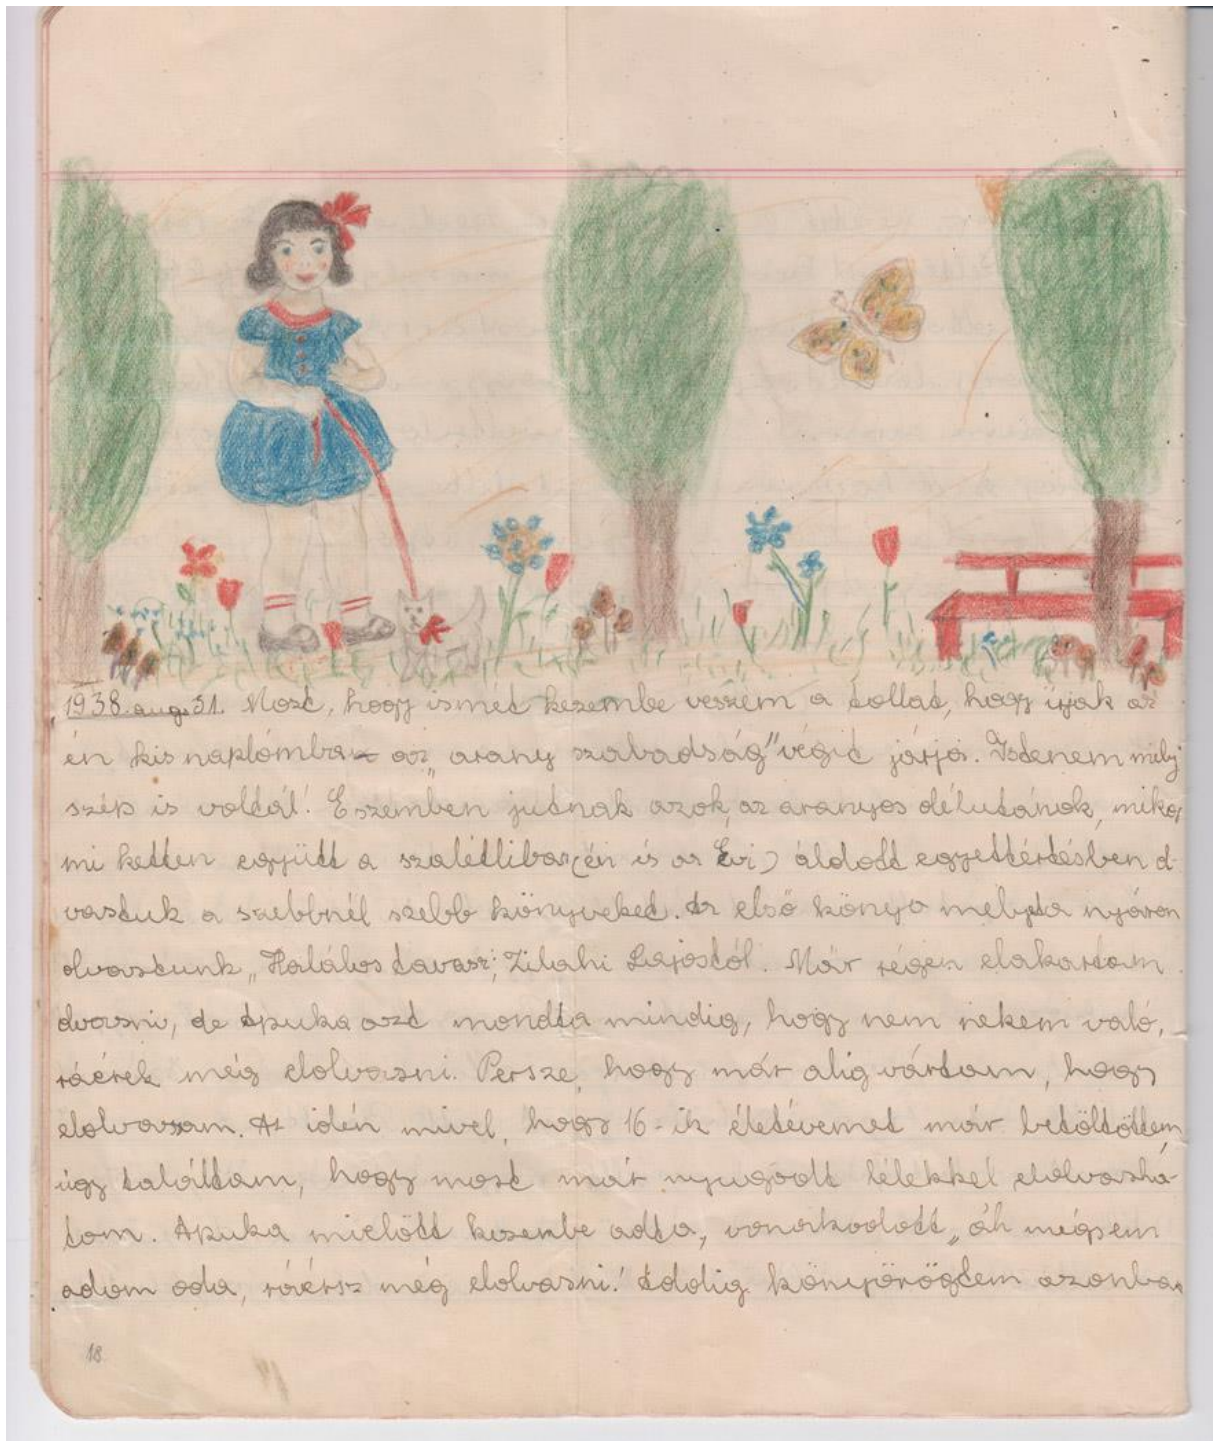 1938. aug. 31. Most, hogy ismét kezembe veszem a tollat, hogy írjak az
én kis naplómba az „arany szabadság" végit járja. Istenem mily
szép is voltál! Eszemben jutnak azok, az aranyos délutánok, mikor
mi ketten együtt a szalétliba (én és az Évi) áldott egyettértésben ol-
vastuk a szebbnél szebb könyveket. Az első könyv melyet a nyáron
olvastunk „Halálos tavasz"; Zilahi Lajostól. Már régen elakartam
olvasni, de Apuka azt mondta mindig, hogy nem nekem való,
ráérek még elolvasni. Persze, hogy már alig vártam, hogy
elolvassam. Az idén mivel, hogy 16-ik életévemet már betöltöttem,
úgy találtam, hogy most már nyugodt lélekkel elolvasha-
tom. Apuka mielőtt kezembe adta, vonakodott, „áh mégsem
adom oda, ráérsz még elolvasni! Addig könyörögtem azonban
18